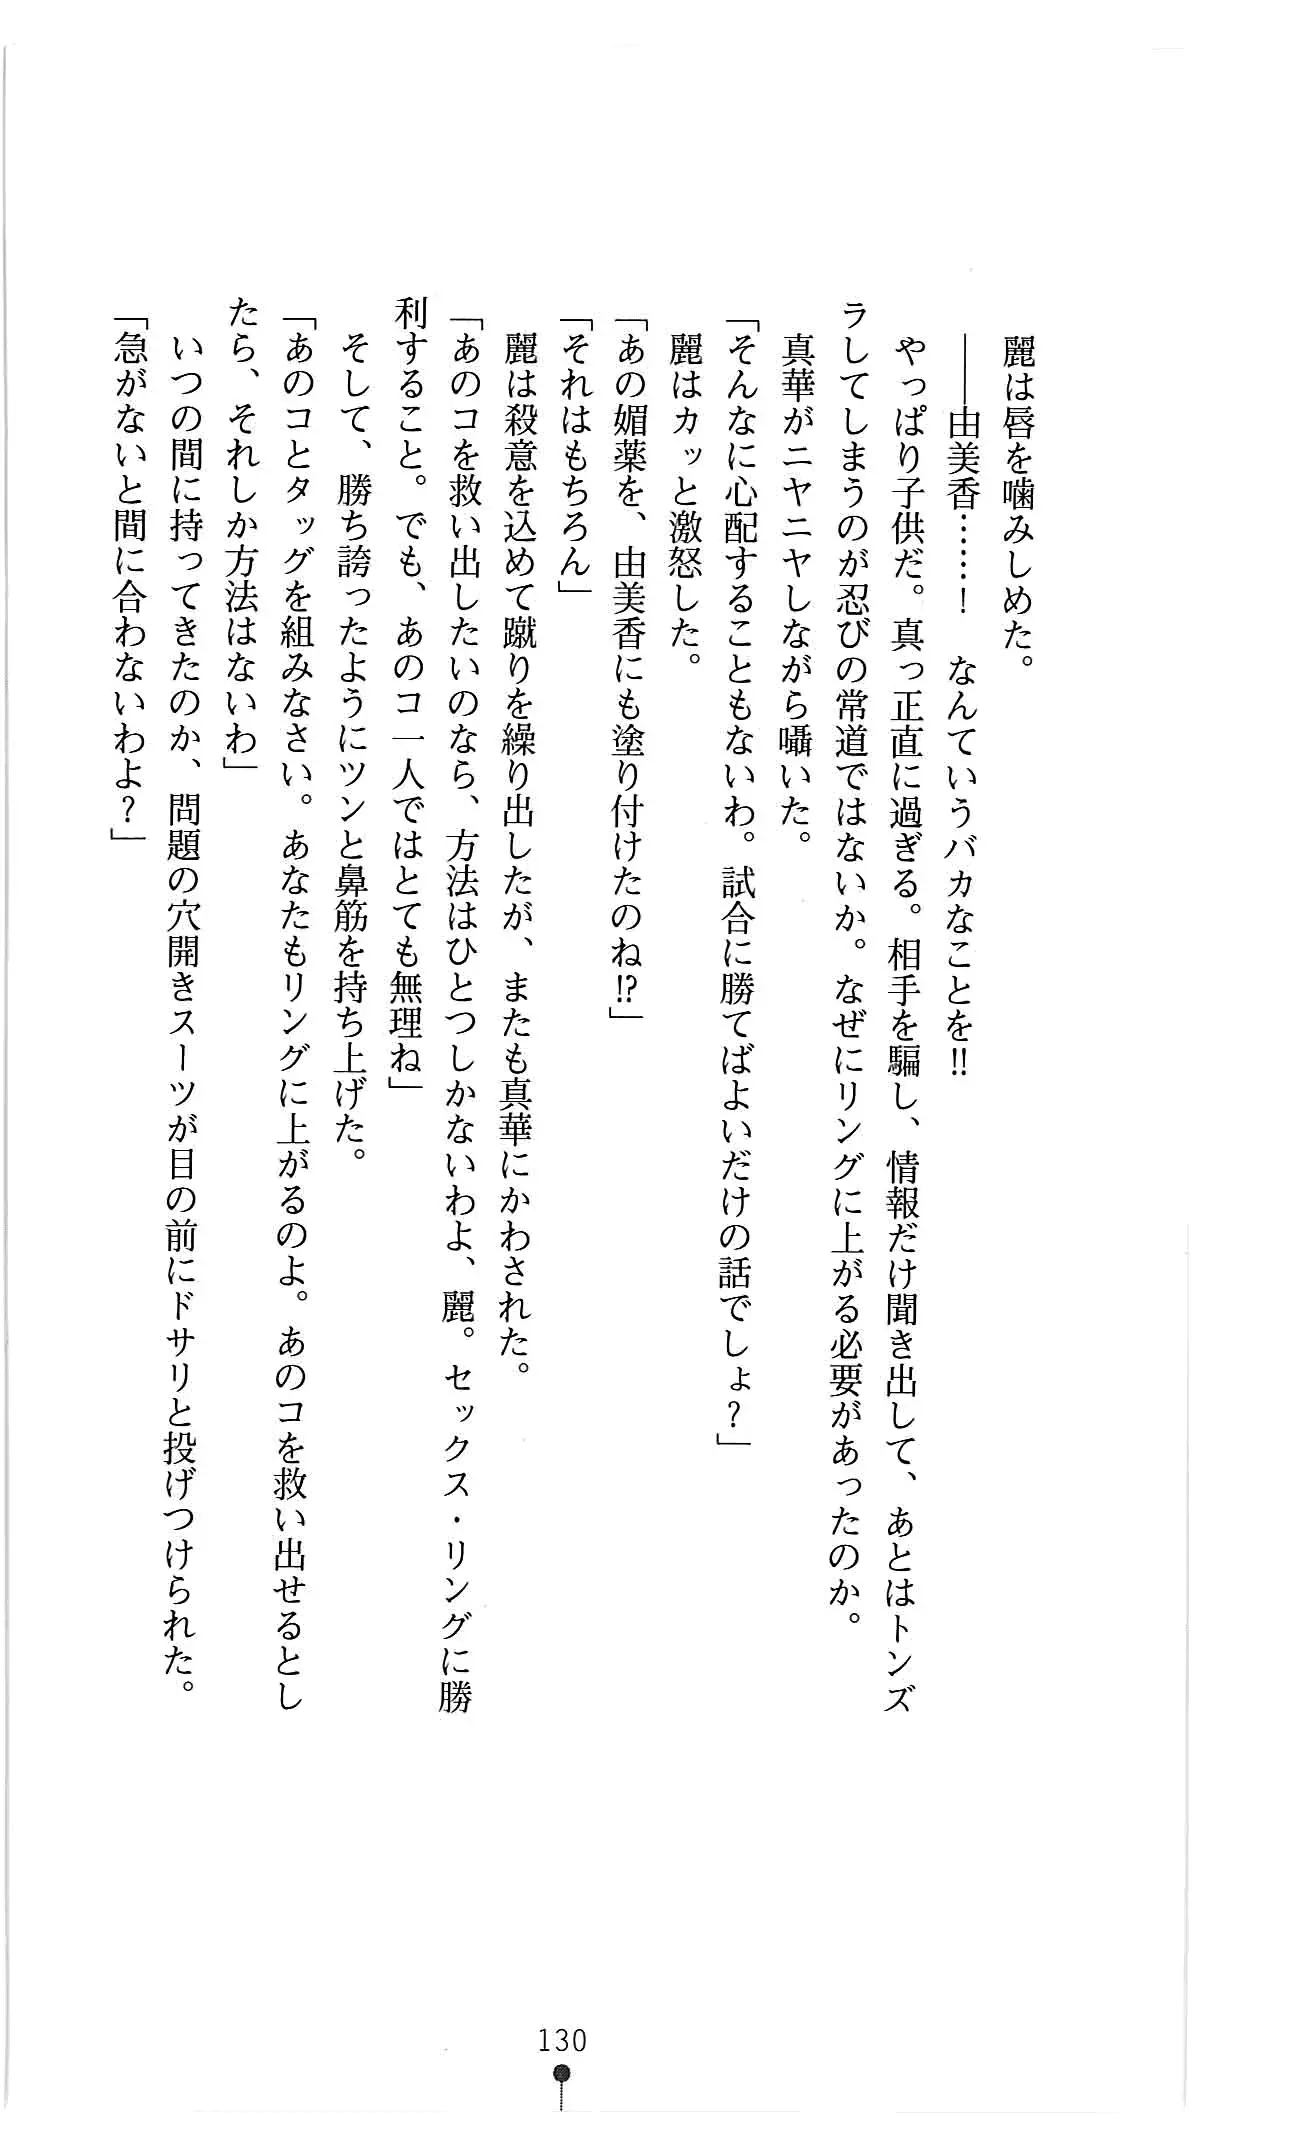 麗は唇を噛みしめた。
――由美香……！　なんていうバカなことを!!
やっぱり子供だ。真っ正直に過ぎる。相手を騙し、情報だけ聞き出して、あとはトンズ
ラしてしまうのが忍びの常道ではないか。なぜにリングに上がる必要があったのか。
真華がニヤニヤしながら囁いた。
「そんなに心配することもないわ。試合に勝てばよいだけの話でしょ？」
麗はカッと激怒した。
「あの媚薬を、由美香にも塗り付けたのね!?」
「それはもちろん」
麗は殺意を込めて蹴りを繰り出したが、またも真華にかわされた。
「あのコを救い出したいのなら、方法はひとつしかないわよ、麗。セックス・リングに勝
利すること。でも、あのコ一人ではとても無理ね」
そして、勝ち誇ったようにツンと鼻筋を持ち上げた。
「あのコとタッグを組みなさい。あなたもリングに上がるのよ。あのコを救い出せるとし
たら、それしか方法はないわ」
いつの間に持ってきたのか、問題の穴開きスーツが目の前にドサリと投げつけられた。
「急がないと間に合わないわよ？」
130